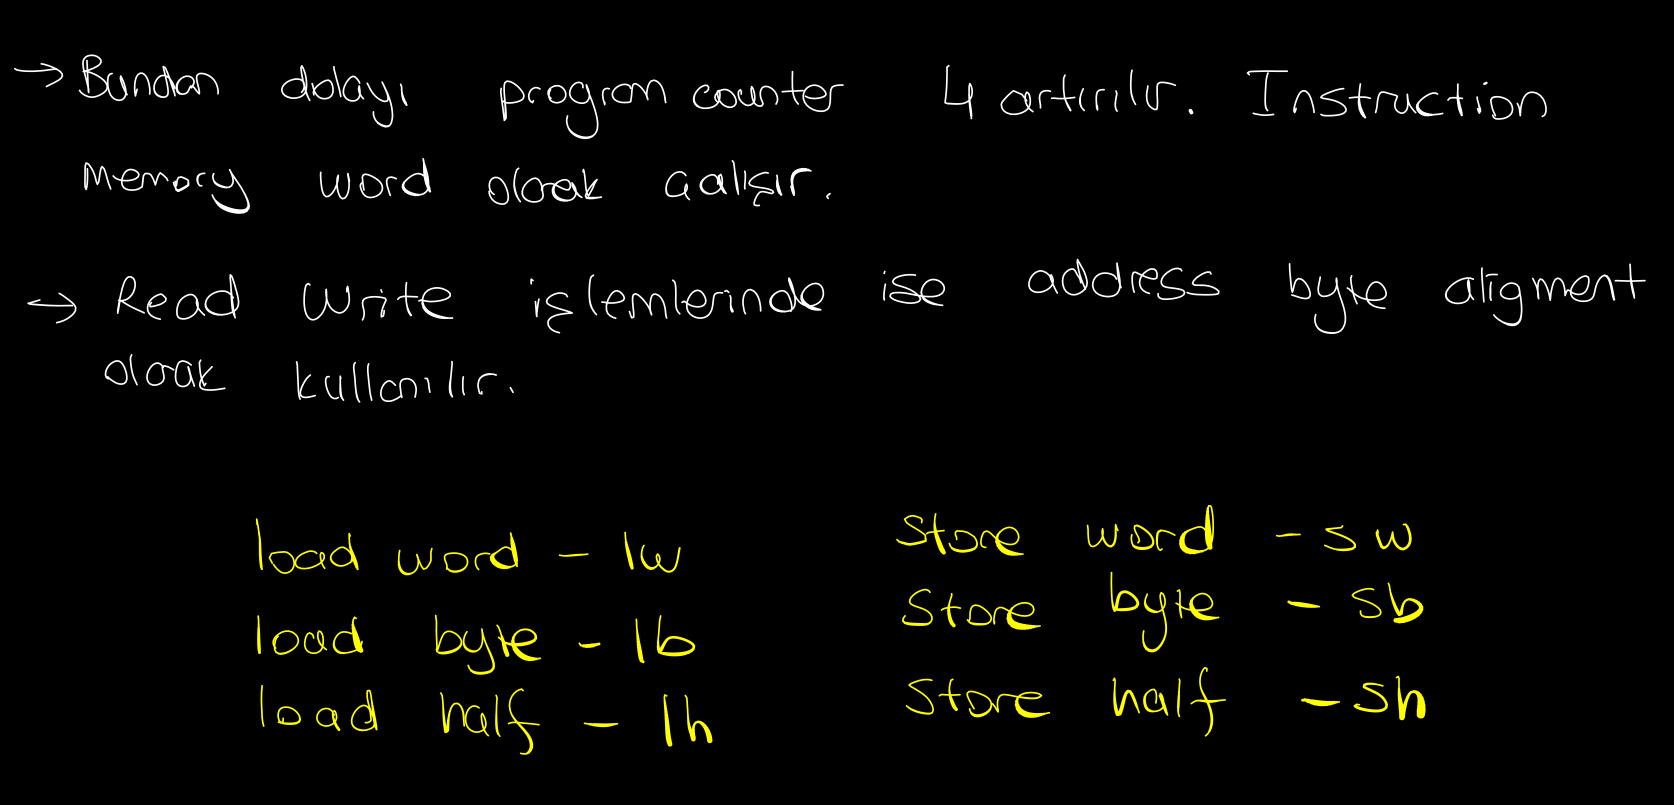 → Bundan dolayı program counter 4 artırılır. Instruction
memory word olarak çalışır.
→ Read Write işlemlerinde ise address byte aligment
olarak kullanılır.
load word - lw
load byte - lb
load half - lh
Store word - sw
Store byte - sb
Store half - sh